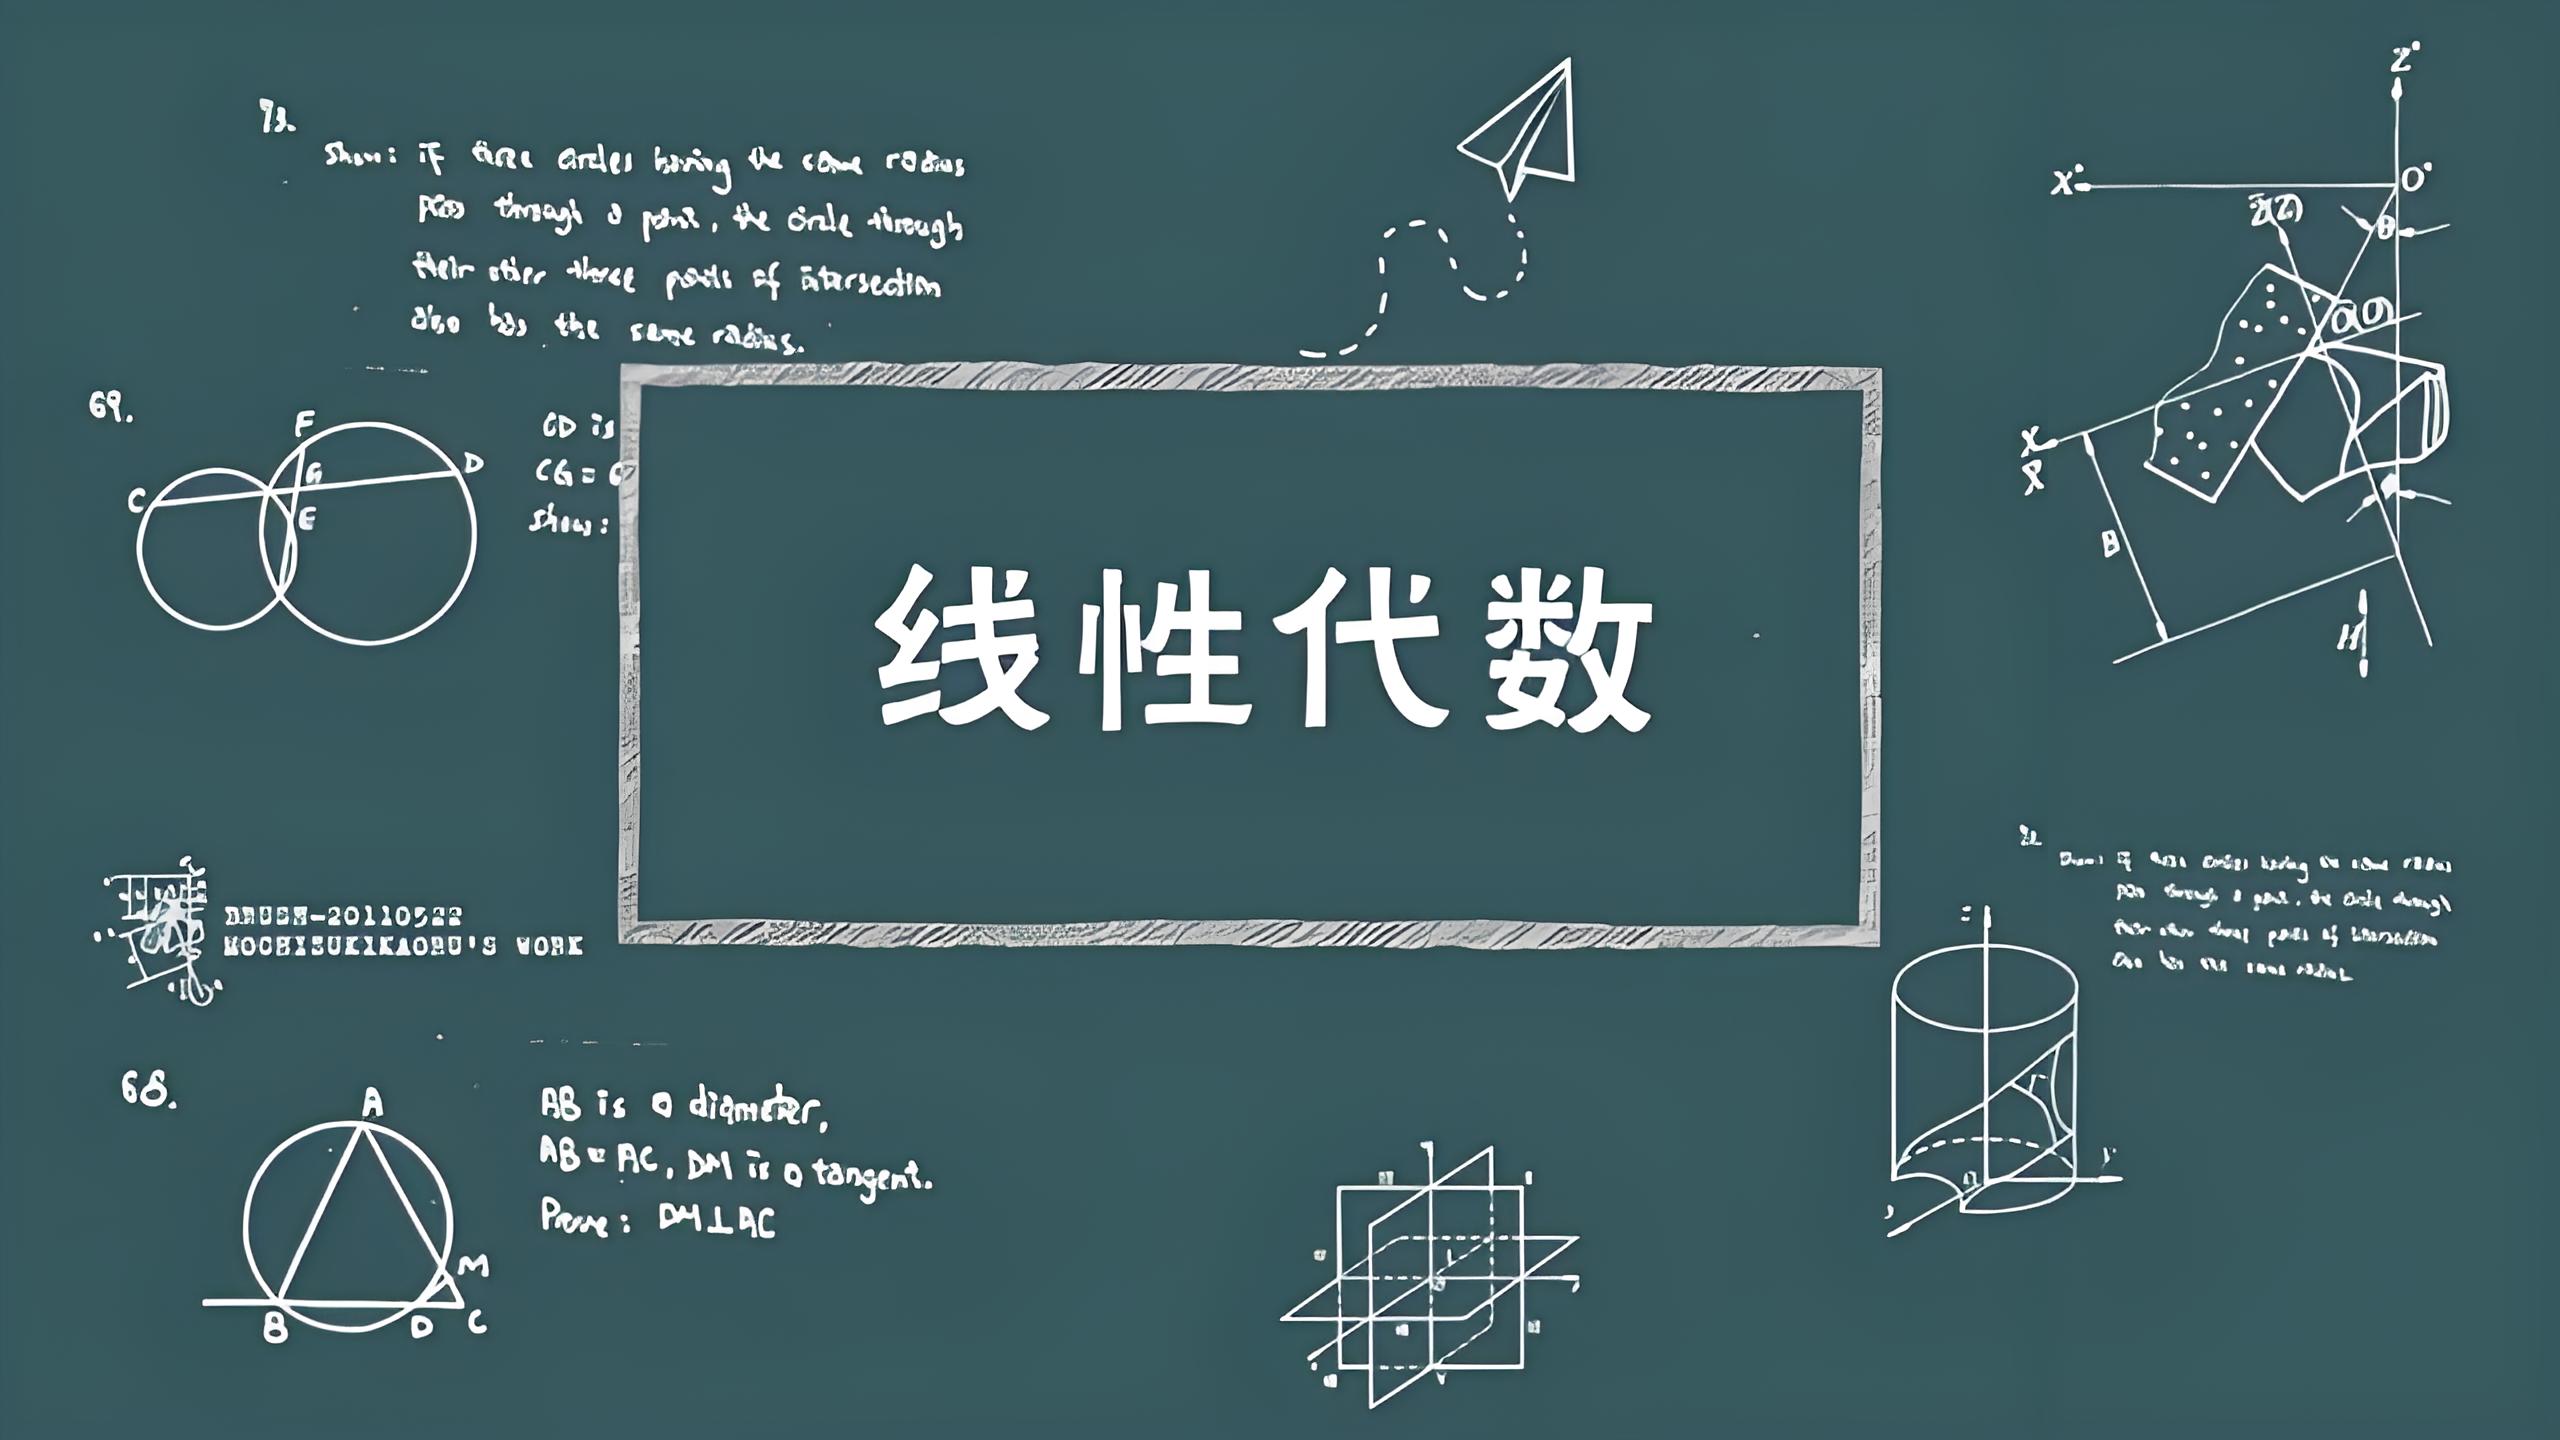 73.
Show: if three circles having the same radius
pass through a point, the circle through
their other three points of intersection
also has the same radius.
69.
F
G
D
C
E
CD is
CG =
show:
线性代数
Z'
X'
O'
Z(Z)
θ
O(O)
X
B
H
-20110522
MOCHIZUKIKAORU'S WORK
68.
A
M
B
D
C
AB is a diameter,
AB = AC, DM is a tangent.
Prove: DM⊥AC
Show: if three circles having the same radius
pass through a point, the circle through
their other three points of intersection
also has the same radius.
r